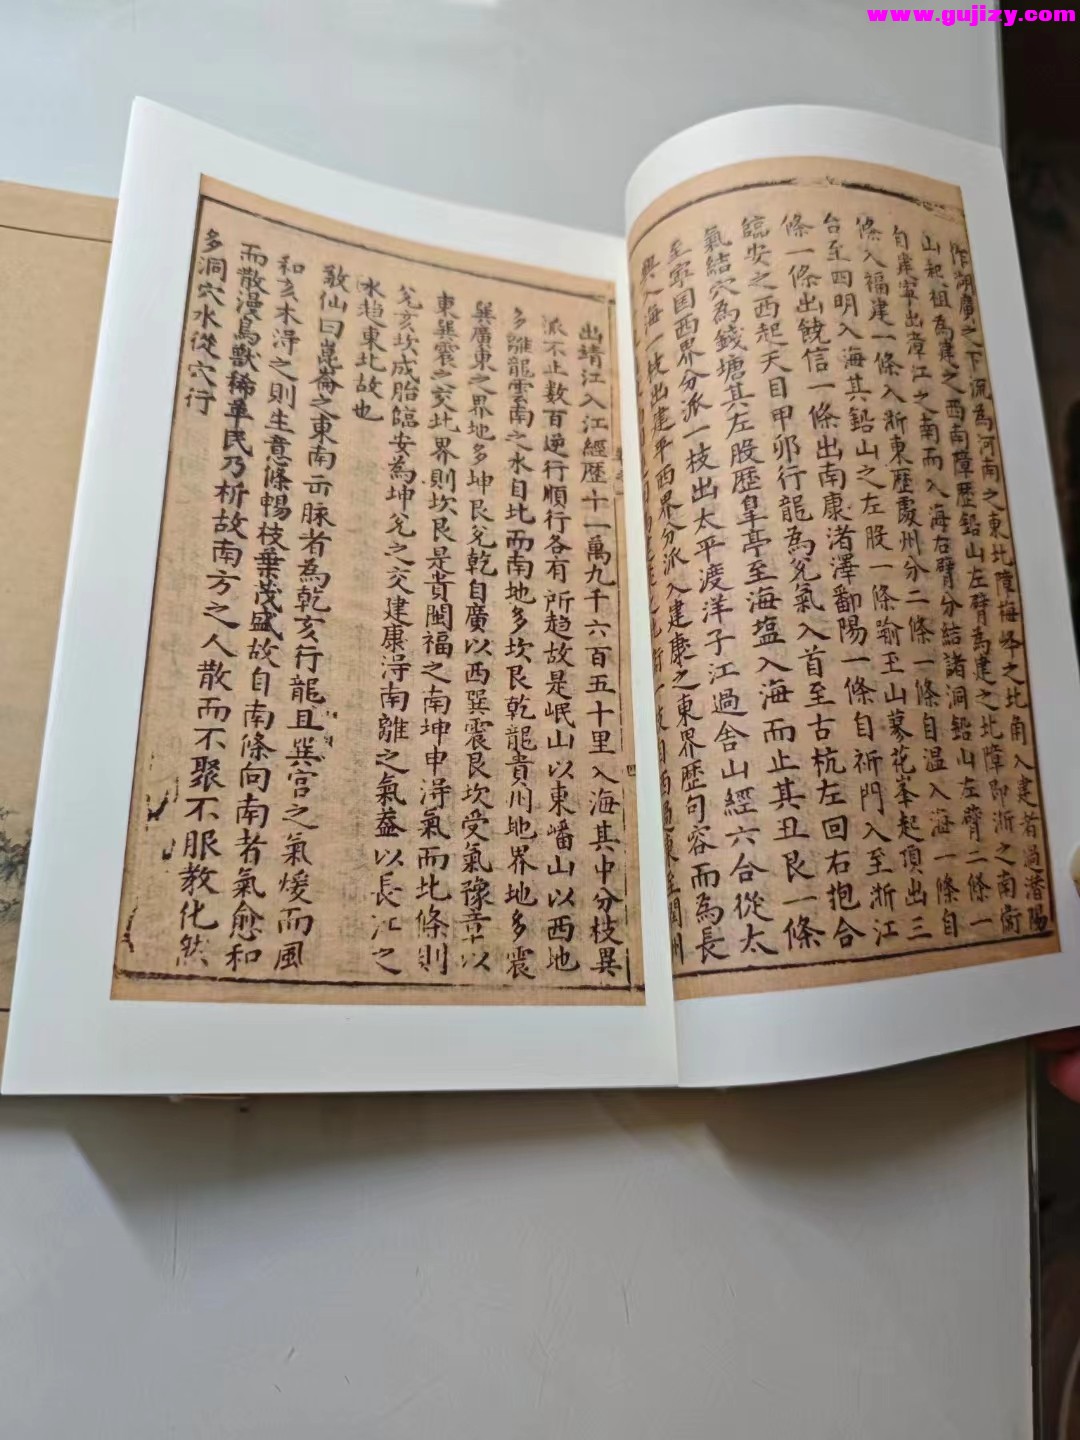 www.gujizy.com
作湖廣之下流為河南之東北障梅嶺之北角入建者過潯陽
山起祖為建之西南障歷鉛山左臂為建之北障即浙之南衝
自建寧出漳江之南而入海右臂分結諸洞鉛山左臂二條一
條入福建一條入浙東歷處州分二條一條自溫入海一條自
台至四明入海其鉛山之左股一條踰玉山蓼花峯起頂出三
條一條出饒信一條出南康渚澤鄱陽一條自祈門入至浙江
臨安之西起天目甲卯行龍為兊氣入首至古杭左回右抱合
氣結穴為錢塘其左股歷皇亭至海塩入海而止其丑艮一條
至寧国西界分派一枝出太平渡洋子江過含山經六合從太
興入海一枝出建平西界分派入建康之東界歷句容而為長
出靖江入江經歷十一萬九千六百五十里入海其中分枝異
派不止数百逆行順行各有所趋故是岷山以東嶓山以西地
多離龍雲南之水自北而南地多坎艮乾龍貴川地界地多震
巽廣東之界地多坤艮兊乾自廣以西巽震艮坎受氣豫章以
東巽震之交北界則坎艮是貴閩福之南坤申淂氣而北條則
兊亥坎成胎臨安為坤兊之交建康淂南離之氣葢以長江之
水趋東北故也
敎仙曰崑崙之東南而脉者為乾亥行龍且巽宫之氣煖而風
和亥木淂之則生意條暢枝葉茂盛故自南條向南者氣愈和
而散漫鳥獸稀革民乃析故南方之人散而不聚不服教化然
多洞穴水從穴行
四